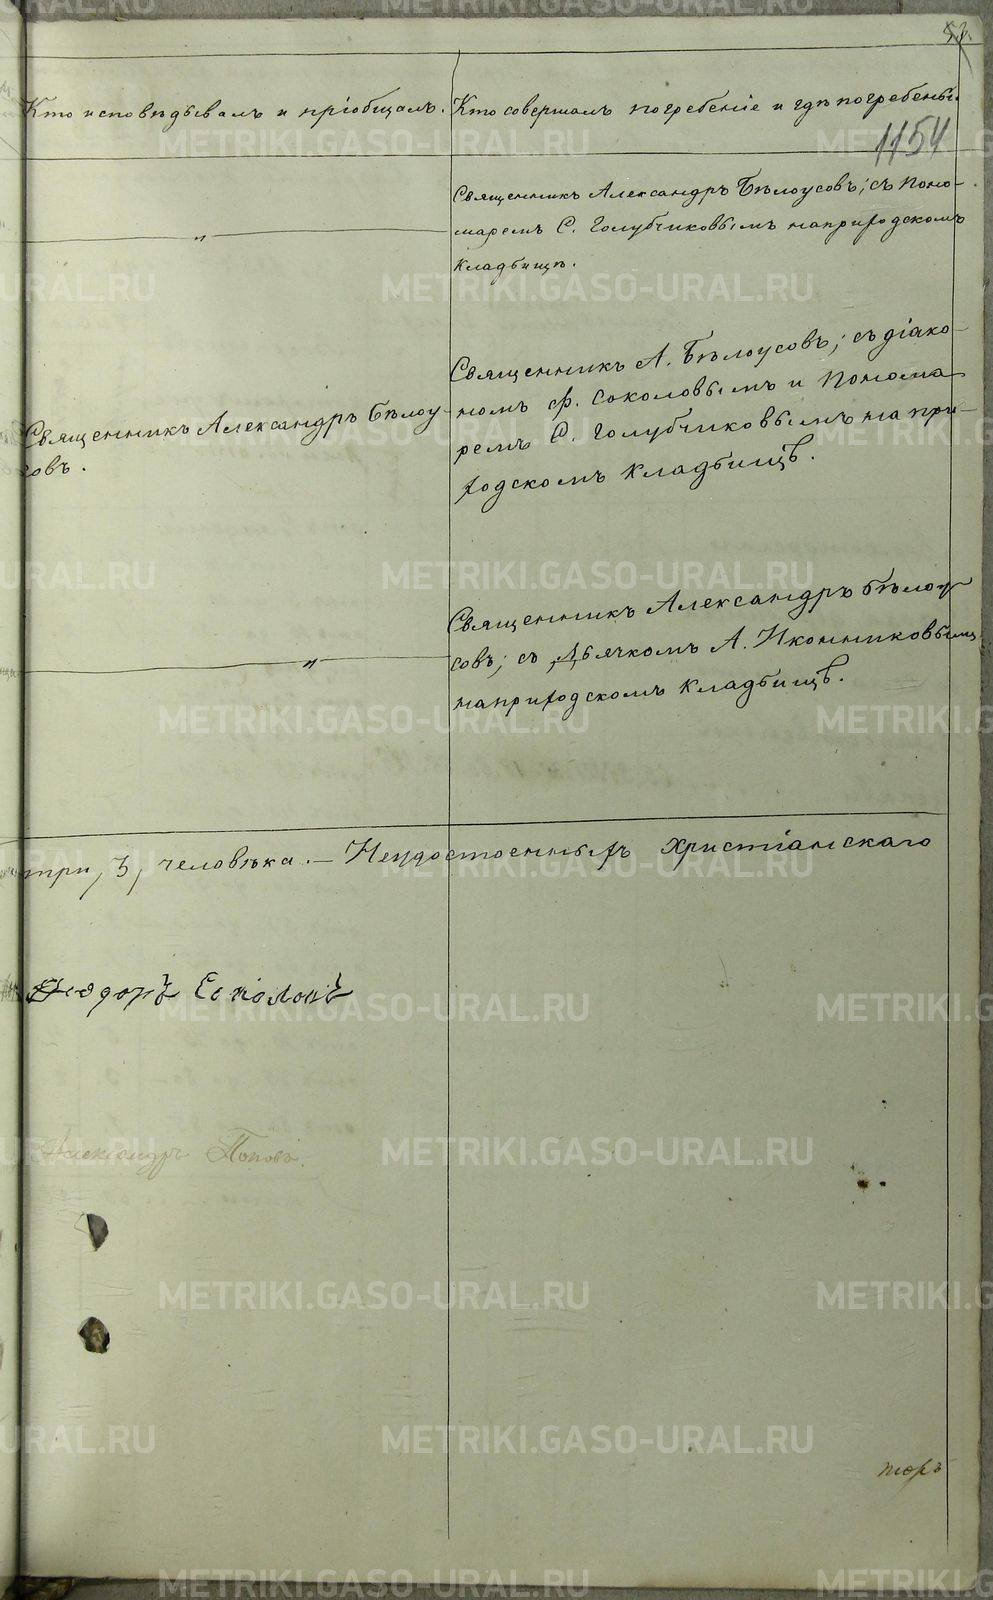 Кто исповѣдывалъ и пріобщалъ. Кто совершалъ погребеніе и гдѣ погребены.
1154
Священникъ Александръ Бѣлоусовъ; съ Поно-
маремъ С. Голубчиковымъ на приходскомъ
кладбищѣ.
"
Священникъ Александръ Бѣлоу-
совъ.
Священникъ А. Бѣлоусовъ; съ діако-
номъ Ф. Соколовымъ и Понома-
ремъ С. Голубчиковымъ на при-
ходскомъ кладбищѣ.
"
Священникъ Александръ Бѣлоу
совъ; съ Дьячкомъ А. Иконниковымъ
на приходскомъ кладбищѣ.
три, 3, человѣка. — Неудостоенныхъ христіанскаго
Ѳеодоръ Соколовъ
Александръ Поповъ.
METRIKI.GASO-URAL.RU